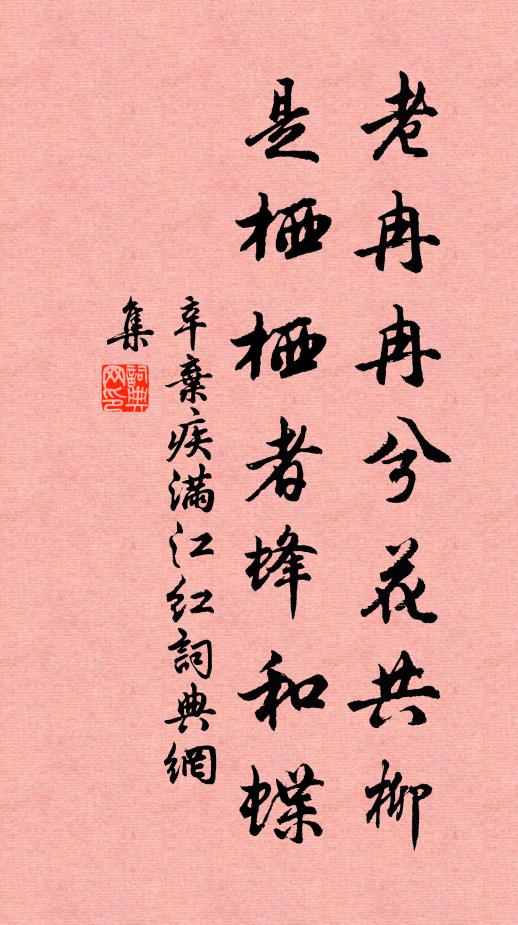 老冉冉兮花共柳
是栖栖者蜂和蝶
辛棄疾滿江紅詞典網
集
詞典網印